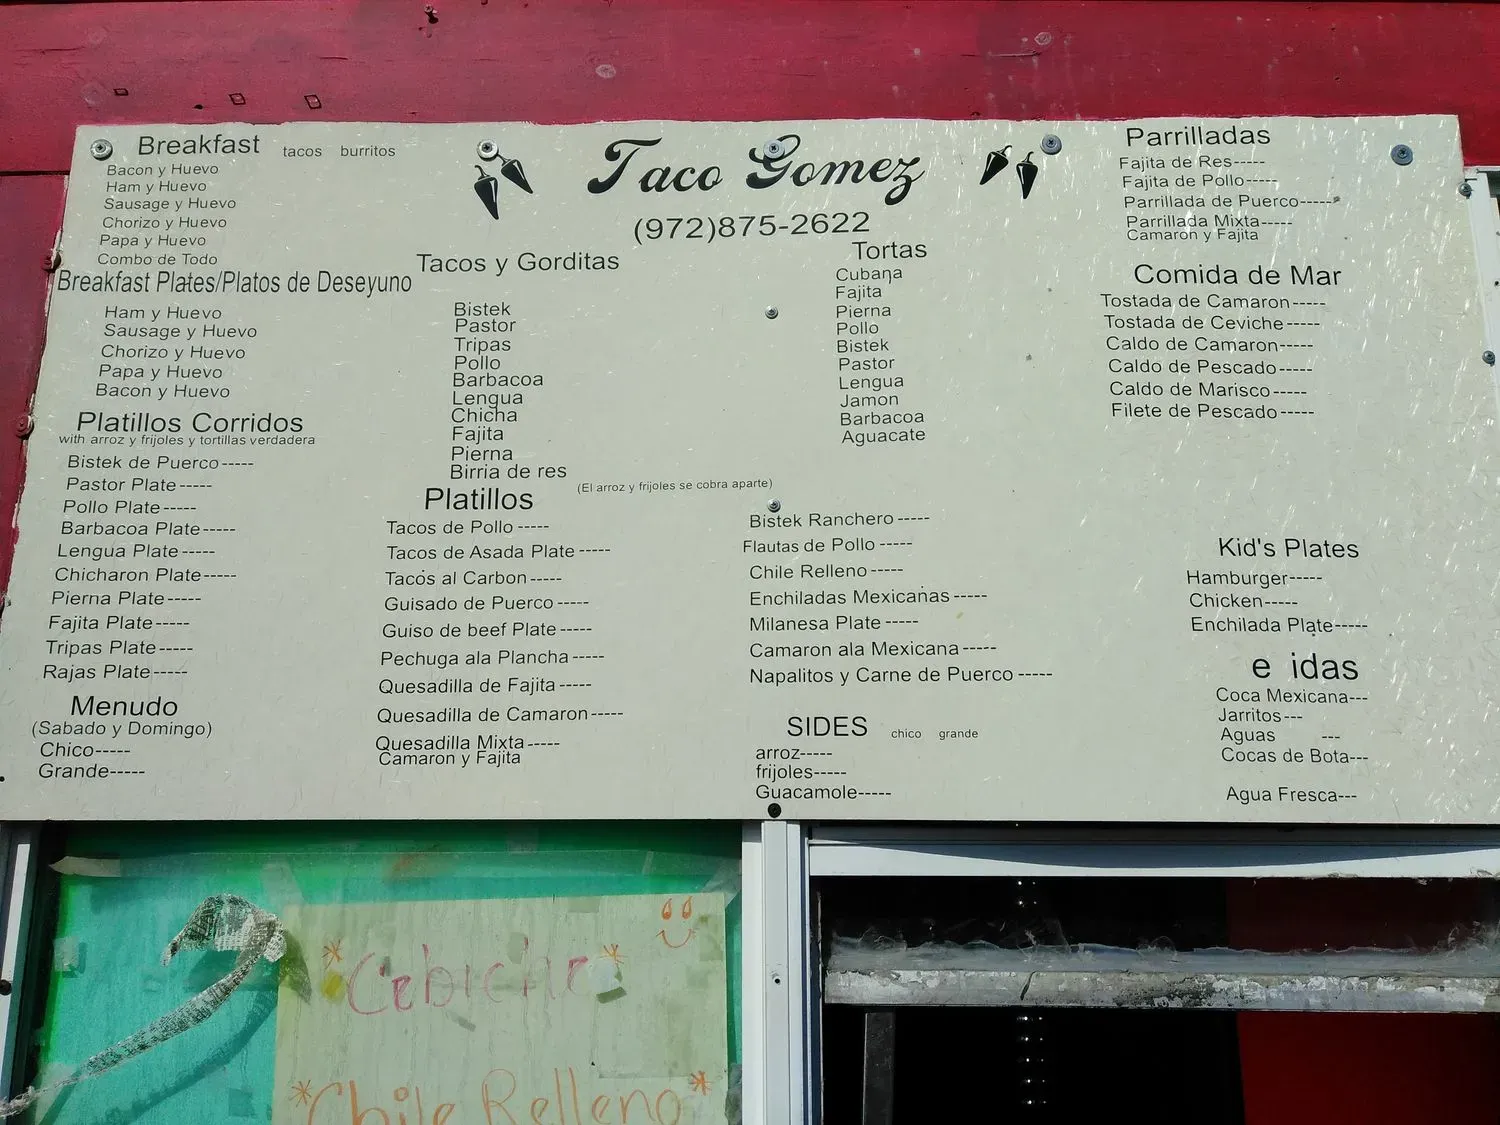 Taco Gomez
(972)875-2622
Breakfast tacos burritos
Bacon y Huevo
Ham y Huevo
Sausage y Huevo
Chorizo y Huevo
Papa y Huevo
Combo de Todo
Breakfast Plates/Platos de Deseyuno
Ham y Huevo
Sausage y Huevo
Chorizo y Huevo
Papa y Huevo
Bacon y Huevo
Platillos Corridos
with arroz y frijoles y tortillas verdadera
Bistek de Puerco-----
Pastor Plate-----
Pollo Plate-----
Barbacoa Plate-----
Lengua Plate-----
Chicharon Plate-----
Pierna Plate-----
Fajita Plate-----
Tripas Plate-----
Rajas Plate-----
Menudo
(Sabado y Domingo)
Chico-----
Grande-----
Tacos y Gorditas
Bistek
Pastor
Tripas
Pollo
Barbacoa
Lengua
Chicha
Fajita
Pierna
Birria de res
Platillos (El arroz y frijoles se cobra aparte)
Tacos de Pollo -----
Tacos de Asada Plate -----
Tacos al Carbon-----
Guisado de Puerco -----
Guiso de beef Plate-----
Pechuga ala Plancha-----
Quesadilla de Fajita-----
Quesadilla de Camaron-----
Quesadilla Mixta-----
Camaron y Fajita
Tortas
Cubana
Fajita
Pierna
Pollo
Bistek
Pastor
Lengua
Jamon
Barbacoa
Aguacate
Bistek Ranchero -----
Flautas de Pollo -----
Chile Relleno -----
Enchiladas Mexicanas -----
Milanesa Plate -----
Camaron ala Mexicana -----
Napalitos y Carne de Puerco -----
SIDES chico grande
arroz-----
frijoles-----
Guacamole-----
Parrilladas
Fajita de Res-----
Fajita de Pollo-----
Parrillada de Puerco-----
Parrillada Mixta-----
Camaron y Fajita
Comida de Mar
Tostada de Camaron-----
Tostada de Ceviche-----
Caldo de Camaron-----
Caldo de Pescado-----
Caldo de Marisco-----
Filete de Pescado-----
Kid's Plates
Hamburger-----
Chicken-----
Enchilada Plate-----
e idas
Coca Mexicana---
Jarritos---
Aguas ---
Cocas de Bota---
Agua Fresca---
*Cebiche*
*Chile Relleno*